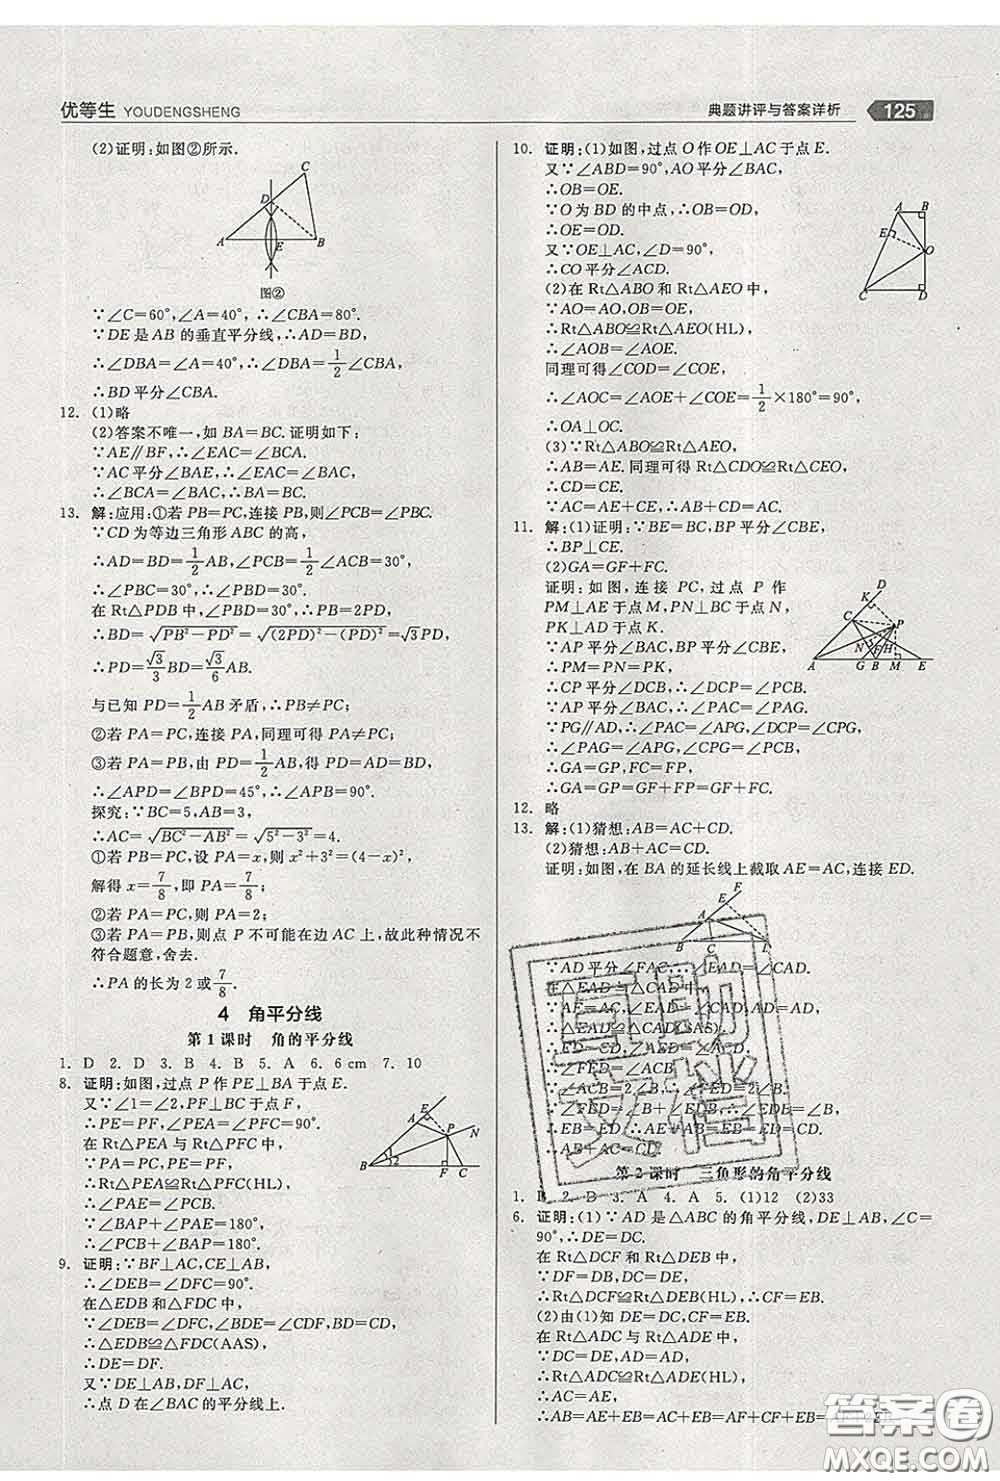 优等生 YOUDENGSHENG
典题讲评与答案详析 125
(2)证明:如图②所示.
C
D
A E B
图②
∵∠C=60°,∠A=40°,∴∠CBA=80°.
∵DE 是 AB 的垂直平分线,∴AD=BD,
∴∠DBA=∠A=40°,∴∠DBA=1/2∠CBA,
∴BD 平分∠CBA.
12. (1)略
(2)答案不唯一,如 BA=BC. 证明如下:
∵AE∥BF,∴∠EAC=∠BCA.
∵AC 平分∠BAE,∴∠EAC=∠BAC,
∴∠BCA=∠BAC,∴BA=BC.
13. 解:应用:①若 PB=PC,连接 PB,则∠PCB=∠PBC.
∵CD 为等边三角形 ABC 的高,
∴AD=BD=1/2AB,∠PCB=1/2∠ACB=30°,
∴∠PBC=30°,∴∠PBD=30°.
在 Rt△PDB 中,∠PBD=30°,∴PB=2PD,
∴BD=√(PB²-PD²)=√((2PD)²-(PD)²)=√3PD,
∴PD=√3/3BD=√3/6AB.
与已知 PD=1/2AB 矛盾,∴PB≠PC;
②若 PA=PC,连接 PA,同理可得 PA≠PC;
③若 PA=PB,由 PD=1/2AB,得 PD=AD=BD,
∴∠APD=∠BPD=45°,∴∠APB=90°.
探究:∵BC=5,AB=3,
∴AC=√(BC²-AB²)=√(5²-3²)=4.
①若 PB=PC,设 PA=x,则 x²+3²=(4-x)²,
解得 x=7/8,即 PA=7/8;
②若 PA=PC,则 PA=2;
③若 PA=PB,则点 P 不可能在边 AC 上,故此种情况不
符合题意,舍去.
∴PA 的长为 2 或7/8.
4 角平分线
第 1 课时 角的平分线
1. D 2. D 3. B 4. B 5. A 6. 6 cm 7. 10
8. 证明:如图,过点 P 作 PE⊥BA 于点 E.
又∵∠1=∠2,PF⊥BC 于点 F,
∴PE=PF,∠PEA=∠PFC=90°.
在 Rt△PEA 与 Rt△PFC 中,
∵PA=PC,PE=PF,
∴Rt△PEA≌Rt△PFC(HL),
∴∠PAE=∠PCB.
∵∠BAP+∠PAE=180°,
∴∠PCB+∠BAP=180°.
E
A P N
B 2 F C
9. 证明:∵BF⊥AC,CE⊥AB,
∴∠DEB=∠DFC=90°.
在△EDB 和△FDC 中,
∵∠DEB=∠DFC,∠BDE=∠CDF,BD=CD,
∴△EDB≌△FDC(AAS),
∴DE=DF.
又∵DE⊥AB,DF⊥AC,
∴点 D 在∠BAC 的平分线上.
10. 证明:(1)如图,过点 O 作 OE⊥AC 于点 E.
又∵∠ABD=90°,AO 平分∠BAC,
∴OB=OE.
∵O 为 BD 的中点,∴OB=OD,
∴OE=OD.
又∵OE⊥AC,∠D=90°,
∴CO 平分∠ACD.
A B
E
O
C D
(2)在 Rt△ABO 和 Rt△AEO 中,
∵AO=AO,OB=OE,
∴Rt△ABO≌Rt△AEO(HL),
∴∠AOB=∠AOE.
同理可得∠COD=∠COE,
∴∠AOC=∠AOE+∠COE=1/2×180°=90°,
∴OA⊥OC.
(3)∵Rt△ABO≌Rt△AEO,
∴AB=AE. 同理可得 Rt△CDO≌Rt△CEO,
∴CD=CE.
∵AC=AE+CE,∴AB+CD=AC.
11. 解:(1)证明:∵BE=BC,BP 平分∠CBE,
∴BP⊥CE.
(2)GA=GF+FC.
证明:如图,连接 PC,过点 P 作
PM⊥AE 于点 M,PN⊥BC 于点 N,
PK⊥AD 于点 K.
∵AP 平分∠BAC,BP 平分∠CBE,
∴PM=PN=PK,
∴CP 平分∠DCB,∴∠DCP=∠PCB.
∵AP 平分∠BAC,∴∠CAP=∠PAG.
∵PG∥AD,∴∠CAP=∠APG,∠DCP=∠CPG,
∴∠PAG=∠APG,∠CPG=∠PCB,
∴GA=GP,FC=FP,
∴GA=GP=GF+FP=GF+FC.
D
K
C P
N F H
A G B M E
12. 略
13. 解:(1)猜想:AB=AC+CD.
(2)猜想:AB+AC=CD.
证明:如图,在 BA 的延长线上截取 AE=AC,连接 ED.
F
E
A
B C
∵AD 平分∠FAC,∴∠EAD=∠CAD.
在△EAD 与△CAD 中,
∵AE=AC,∠EAD=∠CAD,AD=AD,
∴△EAD≌△CAD(SAS),
∴ED=CD,∠AED=∠ACD,
∴∠FED=∠ACB.
∵∠ACB=2∠B,∴∠FED=2∠B.
∵∠FED=∠B+∠EDB,∴∠EDB=∠B,
∴EB=ED,∴AB+AE=EB=ED=CD,
∴AB+AC=CD.
第 2 课时 三角形的角平分线
1. B 2. D 3. A 4. A 5. (1)12 (2)33
6. 证明:(1)∵AD 是△ABC 的角平分线,DE⊥AB,∠C=
90°,∴DC=DE.
在 Rt△DCF 和 Rt△DEB 中,
∵DF=DB,DC=DE,
∴Rt△DCF≌Rt△DEB(HL),∴CF=EB.
(2)由(1)知 DE=DC,CF=EB.
在 Rt△ADC 与 Rt△ADE 中,
∵DC=DE,AD=AD,
∴Rt△ADC≌Rt△ADE(HL),
∴AC=AE,
∴AB=AE+EB=AC+EB=AF+CF+EB=AF+2EB.
答案圈
MXQE.COM